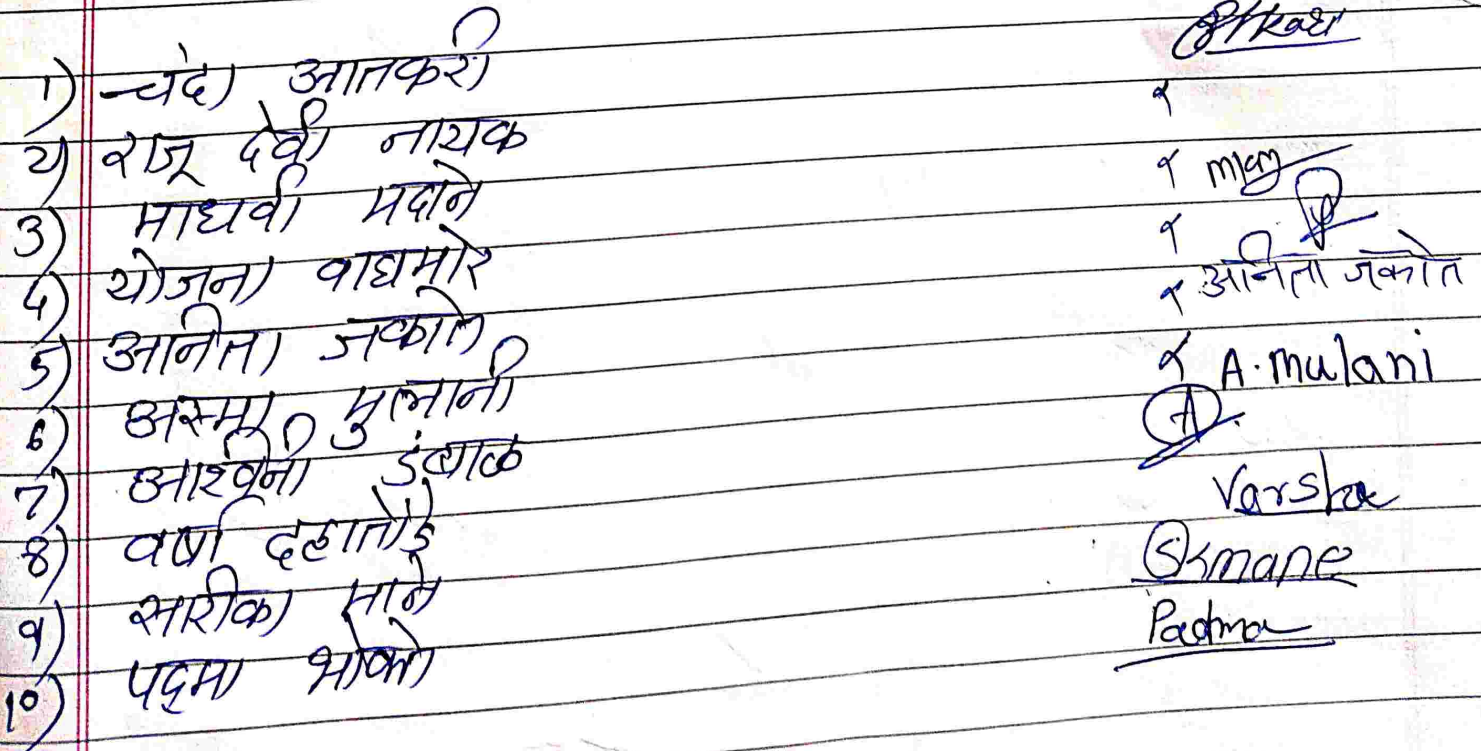 1) चंदा आतकरी
2) राजू देवी नायक
3) माधवी मदाने
4) योजना वाघमोरे
5) अनिता जकाते
6) अस्मा मुलानी
7) आश्विनी डंबाळ
8) वर्षा दहातोंडे
9) सारीका माने
10) पद्मा भोकते
अनिता जकाते
A. Mulani
A
Varsha
Skmane
Padma